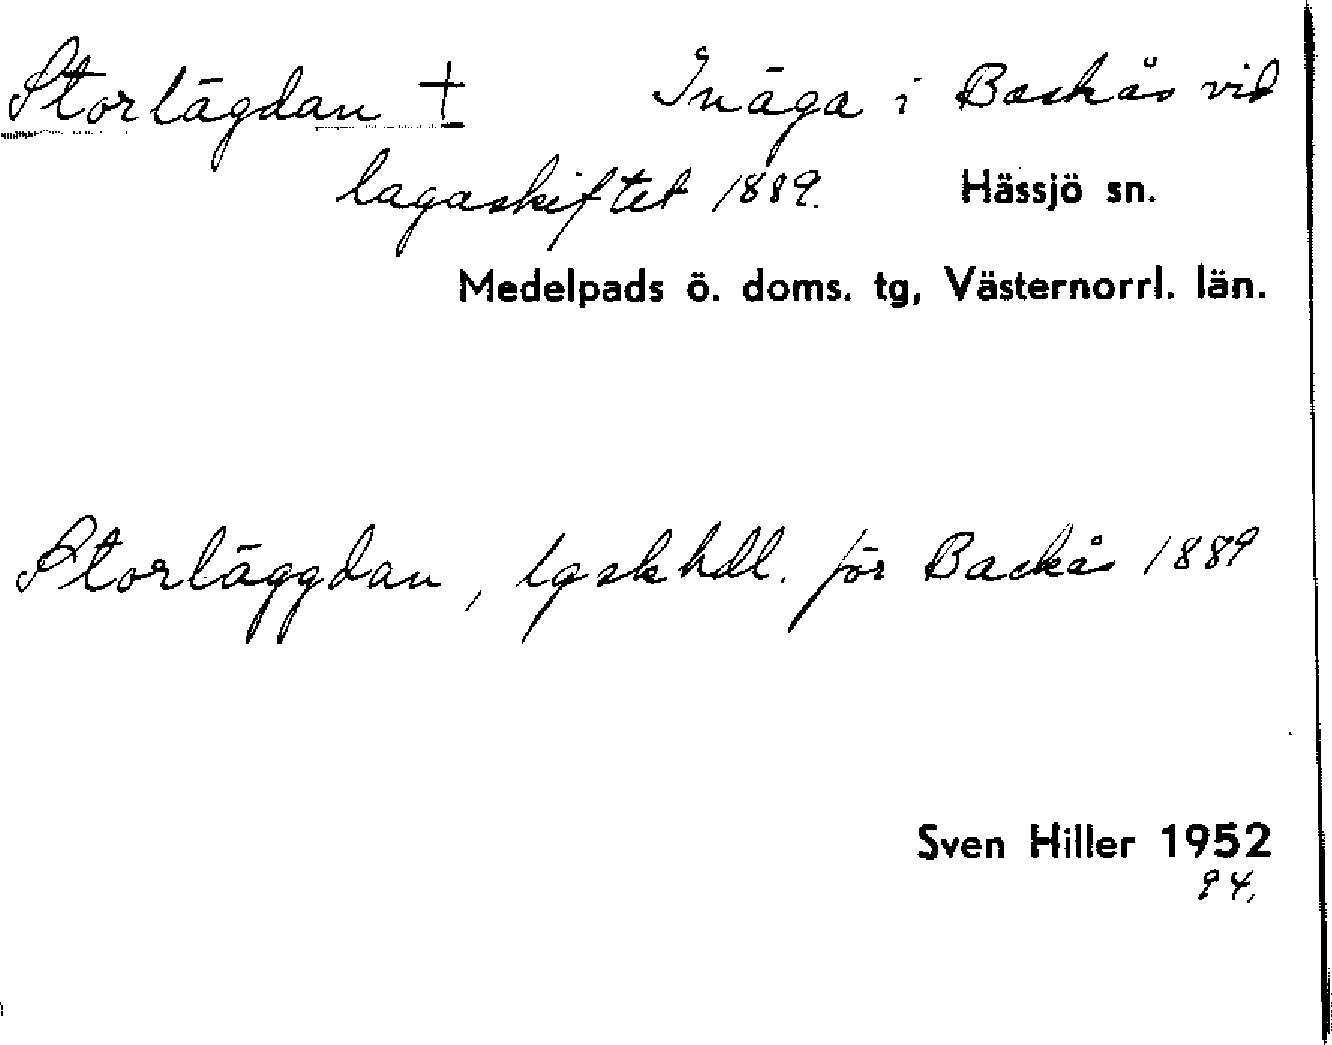 Storlägdan ‡ Inäga i Backås vid
lagaskiftet 1889. Hässjö sn.
Medelpads ö. doms. tg, Västernorrl. län.
Storläggdan, lgskhdl. för Backås 1889
Sven Hiller 1952
94.